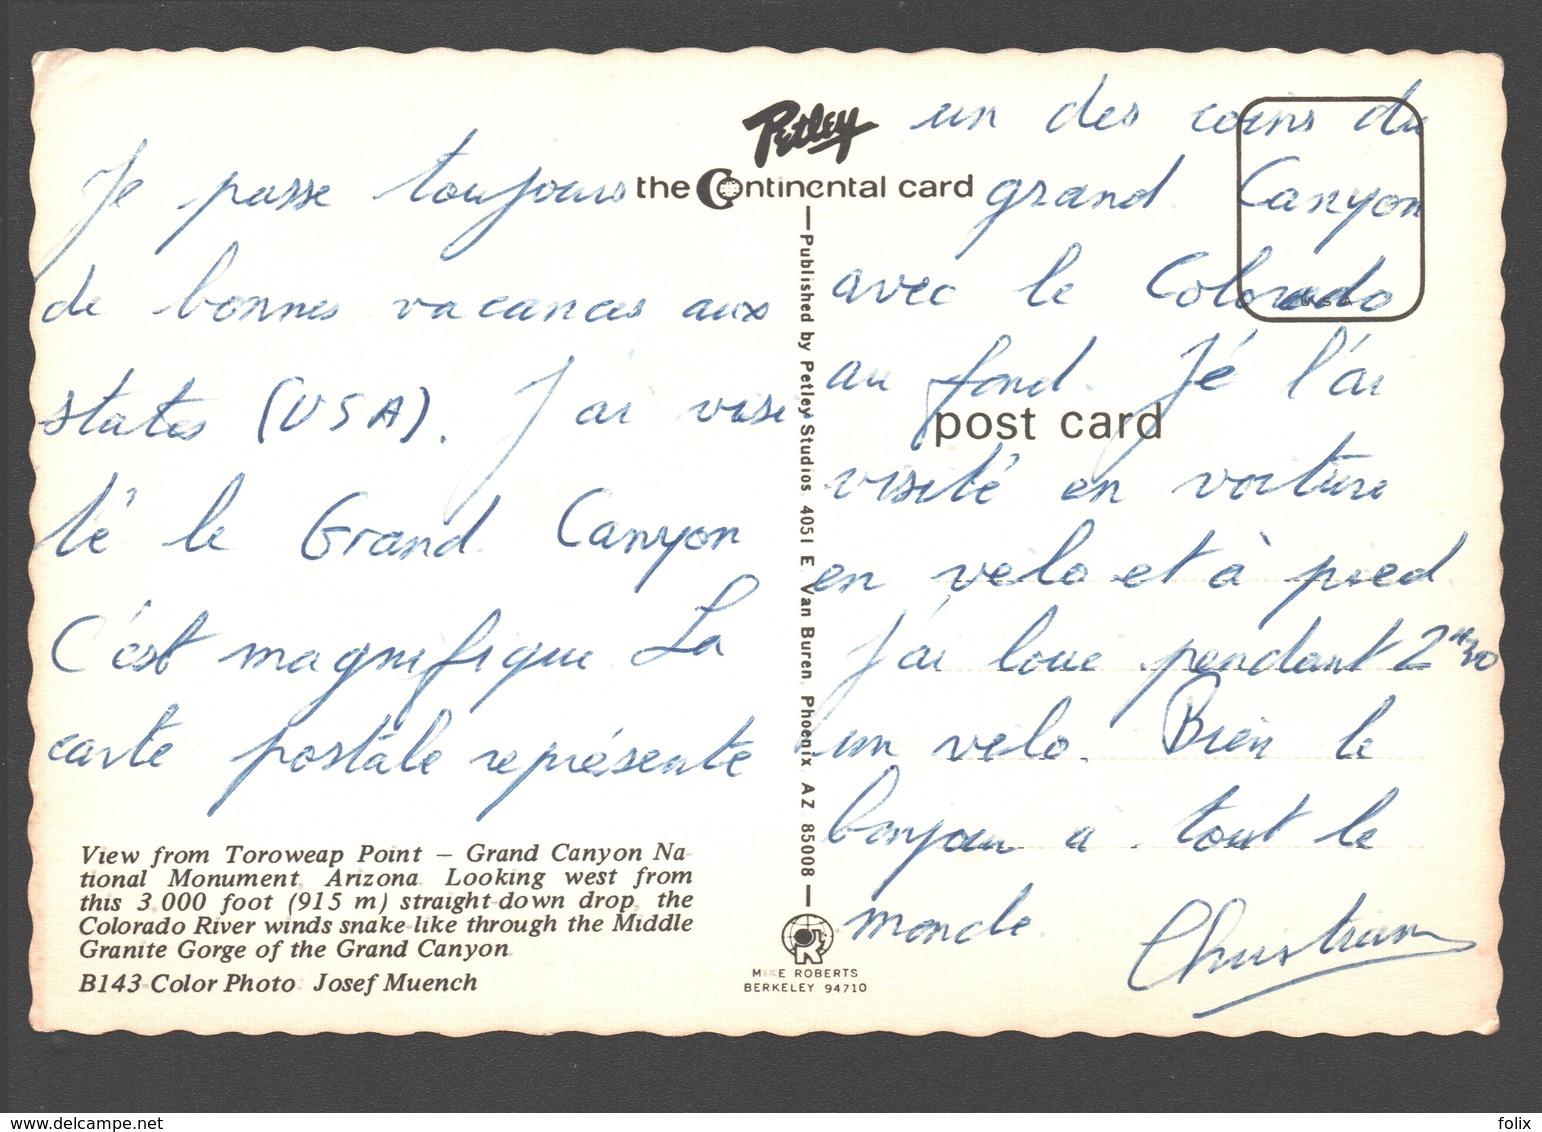 Je passe toujours
de bonnes vacances aux
states (USA). J'ai visi
té le Grand Canyon
C'est magnifique La
carte postale représente
View from Toroweap Point – Grand Canyon Na-
tional Monument, Arizona. Looking west from
this 3,000 foot (915 m) straight-down drop, the
Colorado River winds snake-like through the Middle
Granite Gorge of the Grand Canyon.
B143 Color Photo Josef Muench
Petley
the Continental card
Published by Petley Studios, 4051 E. Van Buren, Phoenix, AZ 85008
MIKE ROBERTS
BERKELEY 94710
post card
USA
un des coins du
grand Canyon
avec le Colorado
au fond. Jé l'ai
visité en voiture
en velo et à pied
J'ai loue pendant 2
un velo. Bien le
bonjour a tout le
monde.
Christian
https://www.delcampe.net
folix